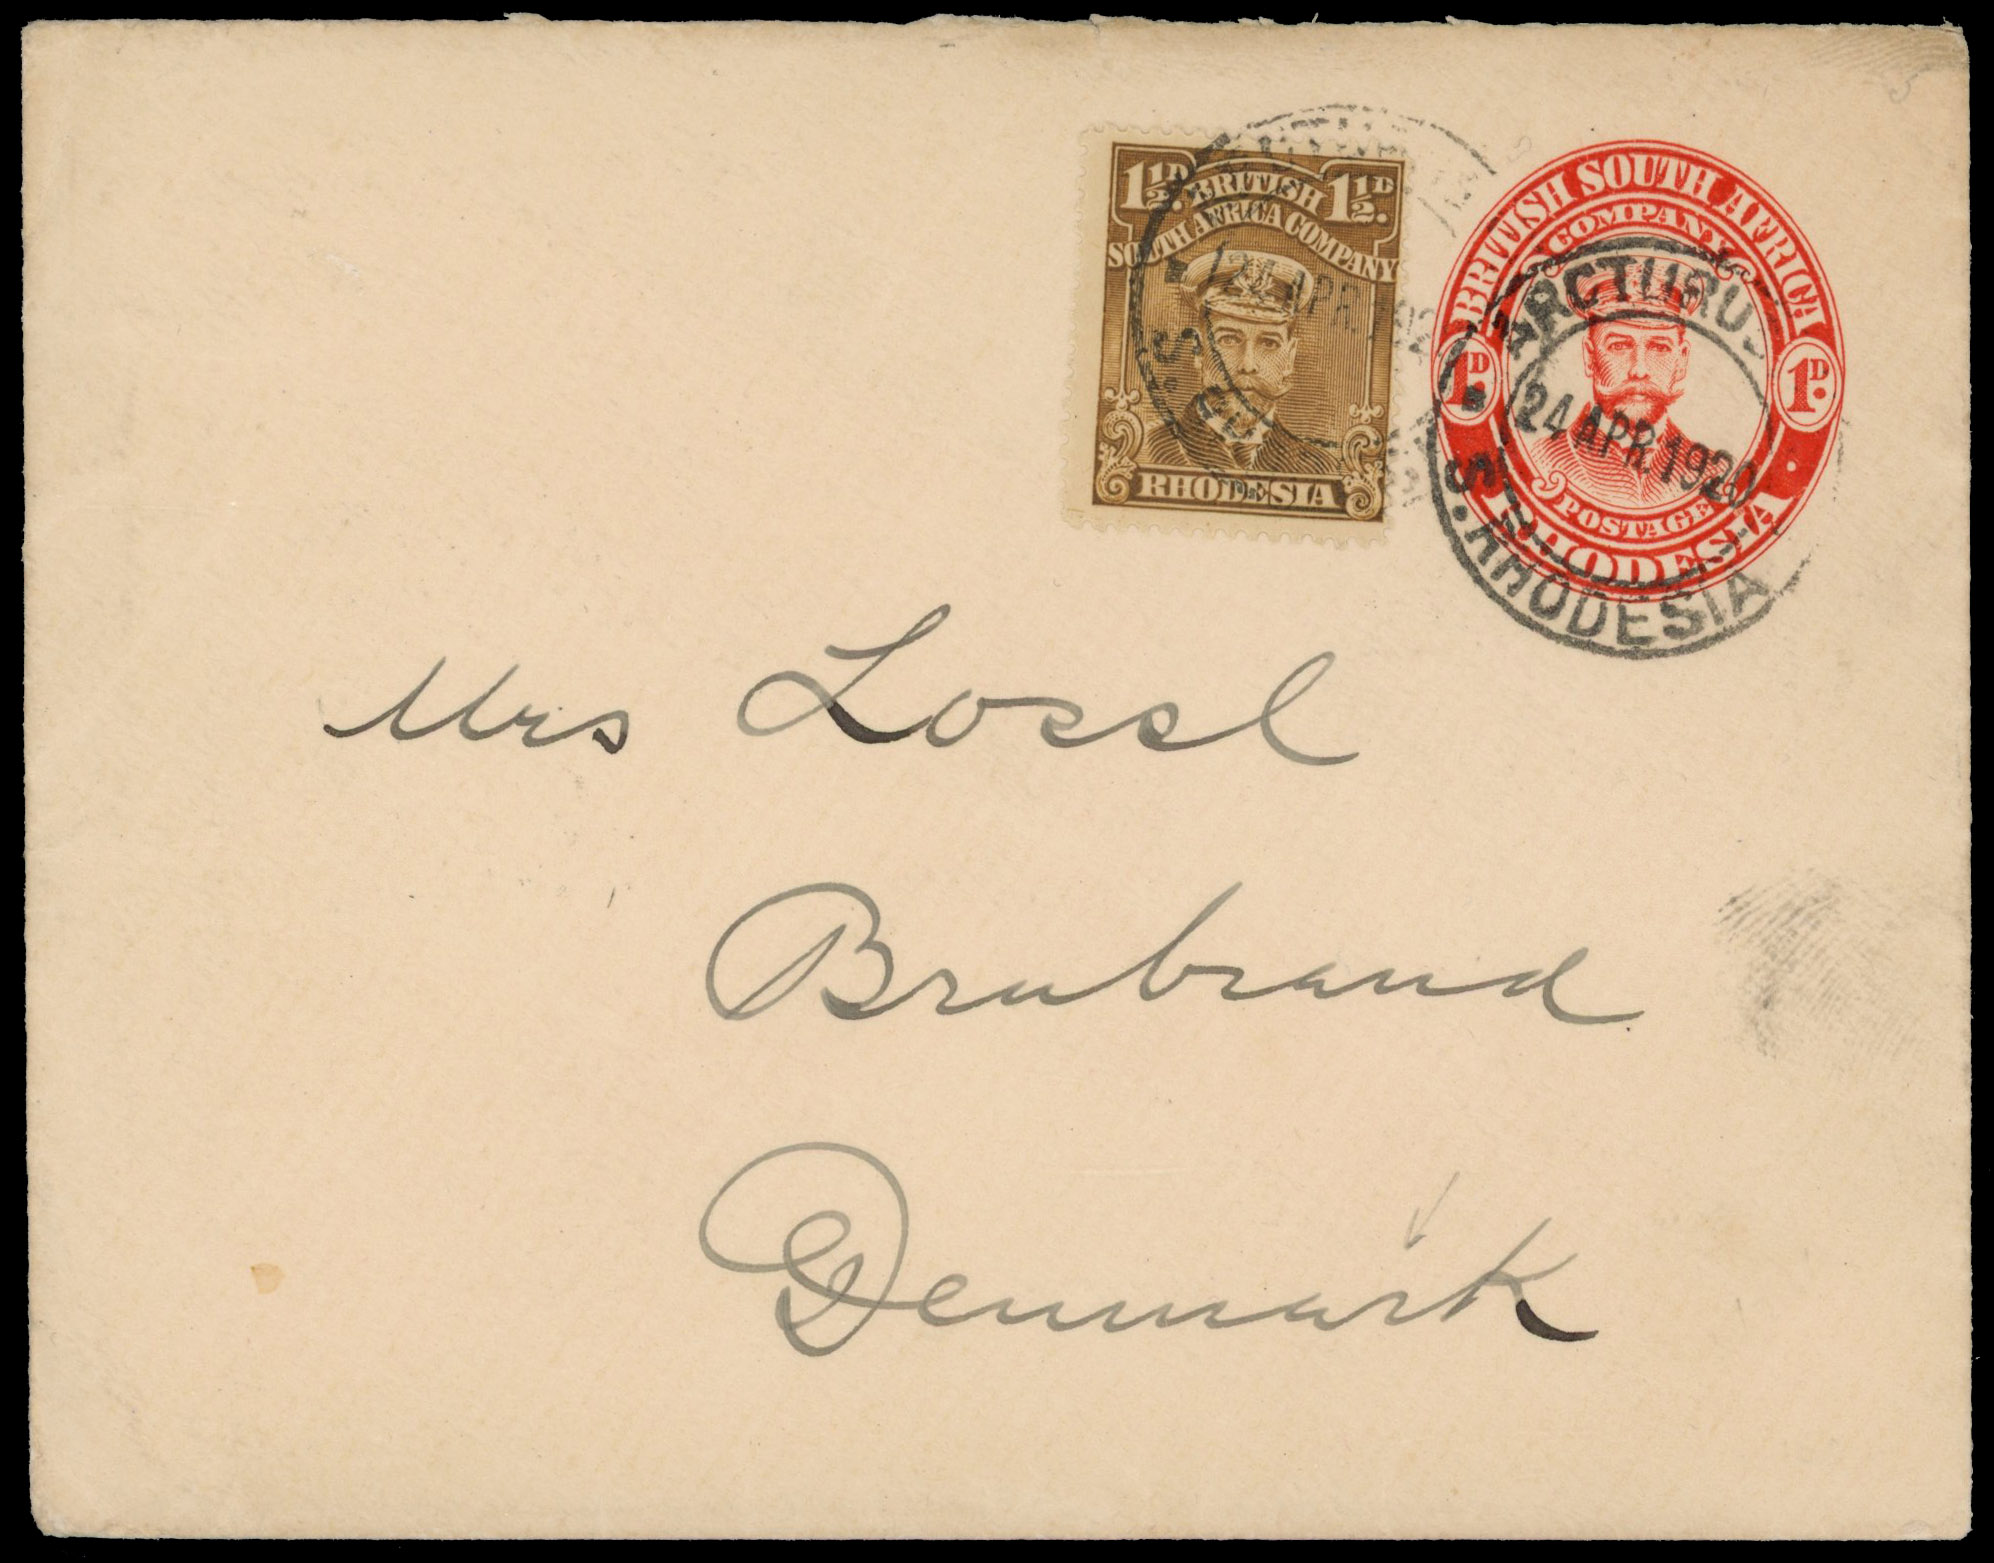 1½D. BRITISH 1½D.
SOUTH AFRICA COMPANY
RHODESIA
BRITISH SOUTH AFRICA
COMPANY
1D. 1D.
POSTAGE
RHODESIA
ARCTURUS
24 APR 1920
S. RHODESIA
24 APR
S.
Mrs Lossl
Brabrand
Denmark